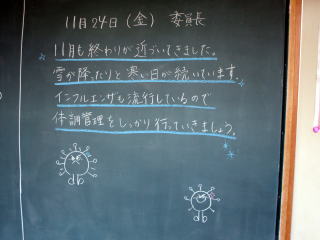 11月24日(金) 委員長
11月も終わりが近づいてきました。
雪が降ったりと寒い日が続いています。
インフルエンザも流行しているので
体調管理をしっかり行っていきましょう。
db
db